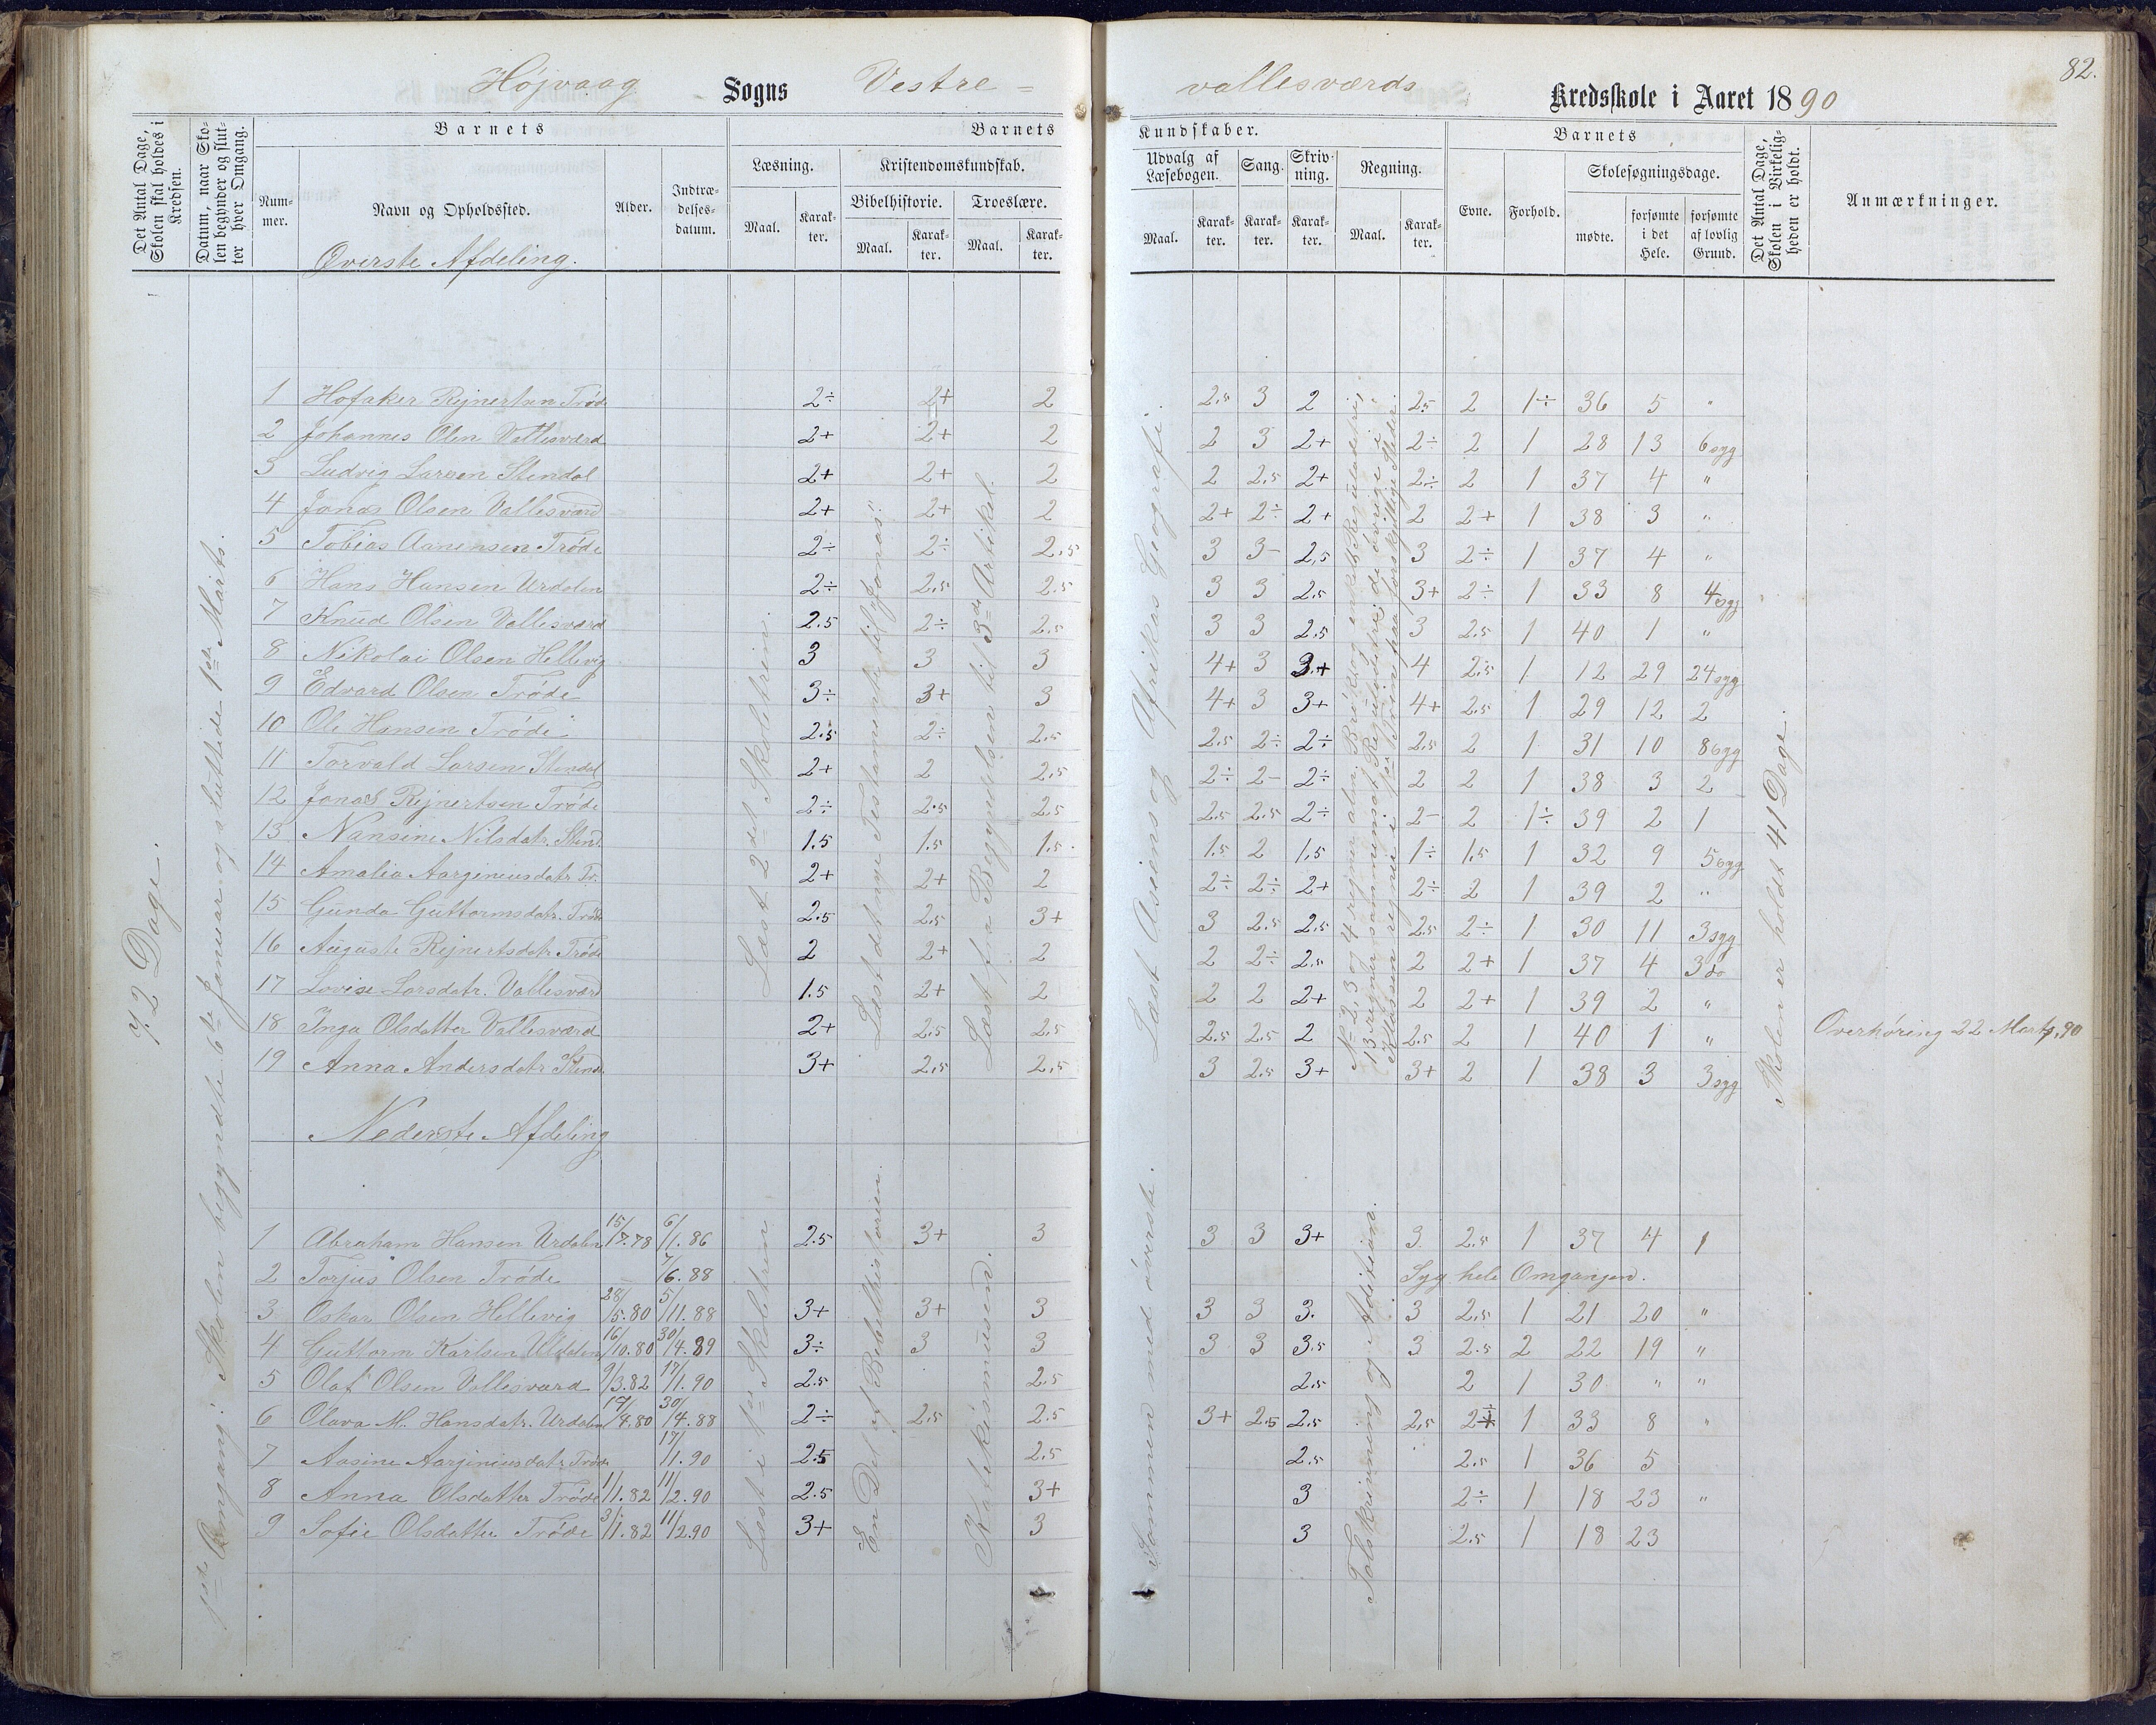 82.
Højvaag Sogns Vestre =
vallesværds Kredsskole i Aaret 1890
Det Antal Dage, Skolen skal holdes i Kredsen.
Datum, naar Skolen begynder og slutter hver Omgang.
Barnets
Nummer.
Navn og Opholdssted.
Alder.
Indtrædelsesdatum.
Barnets
Læsning.
Maal. Karakter.
Kristendomskundskab.
Bibelhistorie.
Maal. Karakter.
Troeslære.
Maal. Karakter.
Kundskaber.
Udvalg af Læsebogen.
Maal. Karakter.
Sang.
Karakter.
Skrivning.
Karakter.
Regning.
Maal. Karakter.
Barnets
Evne. Forhold.
Skolesøgningsdage.
mødte. forsømte i det Hele. forsømte af lovlig Grund.
Det Antal Dage, Skolen i Virkeligheden er holdt.
Anmærkninger.
Øverste Afdeling.
72 Dage.
1ste Omgang: Skolen begyndte 6te Januar og sluttede 1ste Marts.
Læst 2det Skoletrin.
Læst det nye Testamente til "Jonas".
Læst fra Begyndelsen til 3de Artikel.
Læst Asiens og Afrikas Geografi.
Skolen er holdt 41 Dage.
1 Hofaker Rejnertsen Trøde 2÷ 2+ 2 2.5 3 2 2.5 2 1÷ 36 5 "
2 Johannes Olsen Vallesværd 2+ 2+ 2 2 3 2+ 2÷ 2 1 28 13 6 syg
3 Ludvig Larsen Stendal 2+ 2+ 2 2 2.5 2+ 2÷ 2 1 37 4 "
4 Jonas Olsen Vallesværd 2+ 2+ 2 2+ 2÷ 2+ 2 2+ 1 38 3 "
5 Tobias Aanensen Trøde 2÷ 2÷ 2.5 3 3- 2.5 3 2÷ 1 37 4 "
6 Hans Hansen Urdalen 2÷ 2.5 2.5 3 3 2.5 3+ 2÷ 1 33 8 4 syg
7 Knud Olsen Vallesværd 2.5 2÷ 2.5 3 3 2.5 3 2.5 1 40 1 "
8 Nikolai Olsen Hellevig 3 3 3 4+ 3 3+ 4 2.5 1 12 29 24 syg
9 Edvard Olsen Trøde 3÷ 3+ 3 4+ 3 3+ 4+ 2.5 1 29 12 2
10 Ole Hansen Trøde 2.5 2÷ 2.5 2.5 2÷ 2÷ 2.5 2 1 31 10 8 syg
11 Torvald Larsen Stendal 2+ 2 2.5 2÷ 2- 2÷ 2 2 1 38 3 2
12 Jonas Rejnertsen Trøde 2÷ 2.5 2.5 2.5 2.5 2÷ 2- 2 1÷ 39 2 1
13 Nansine Nilsdatr. Stend. 1.5 1.5 1.5 1.5 2 1.5 1÷ 1.5 1 32 9 5 syg
14 Amalia Aargineusdatr. Tr. 2+ 2+ 2 2÷ 2÷ 2+ 2÷ 2 1 39 2 "
15 Gunda Guttormsdatr. Trøde 2.5 2.5 3+ 3 2.5 2.5 2.5 2÷ 1 30 11 3 syg
16 Auguste Rejnertsdatr. Trøde 2 2+ 2 2 2÷ 2.5 2 2+ 1 37 4 3 do
17 Lovise Larsdatr. Vallesværd 1.5 2+ 2 2 2 2+ 2 2+ 1 39 2 "
18 Inga Olsdatter Vallesværd 2+ 2.5 2.5 2.5 2.5 2 2.5 2 1 40 1 " Overhøring 22 Marts 90
19 Anna Andersdatr. Stend. 3+ 2.5 2.5 3 2.5 3+ 3+ 2 1 38 3 3 syg
Nederste Afdeling
Læst i 1ste Skoletrin
En Del af Bibelhistorien.
Katekismusen.
Sammen med øverste.
Talskrivning og Addition.
1 Abraham Hansen Urdalen 15/7.78 6/1.86 2.5 3+ 3 3 3 3+ 3 2.5 1 37 4 1
2 Torjus Olsen Trøde 7/6.88 Syg hele Omgangen.
3 Oskar Olsen Hellevig 28/5.80 5/11.88 3+ 3+ 3 3 3 3. 3 2.5 1 21 20 "
4 Guttorm Karlsen 16/10.80 30/4.89 3÷ 3 3 3 3 3.5 3 2.5 2 22 19 "
5 Olaf Olsen Vallesværd 9/3.82 17/1.90 2.5 2.5 2.5 2 1 30 " "
6 Olava M. Hansdatr. Urdalen 17/4.80 30/4.88 2÷ 2.5 2.5 3+ 2.5 2.5 2.5 2÷ 1 33 8 "
7 Aasine Aargineusdatr. Trøde 17/1.90 2.5 2.5 2.5 2.5 1 36 5
8 Anna Olsdatter Trøde 1/1.82 11/2.90 2.5 3+ 3 2÷ 1 18 23 "
9 Sofie Olsdatter Trøde 3/1.82 11/2.90 3+ 3 3 2.5 1 18 23